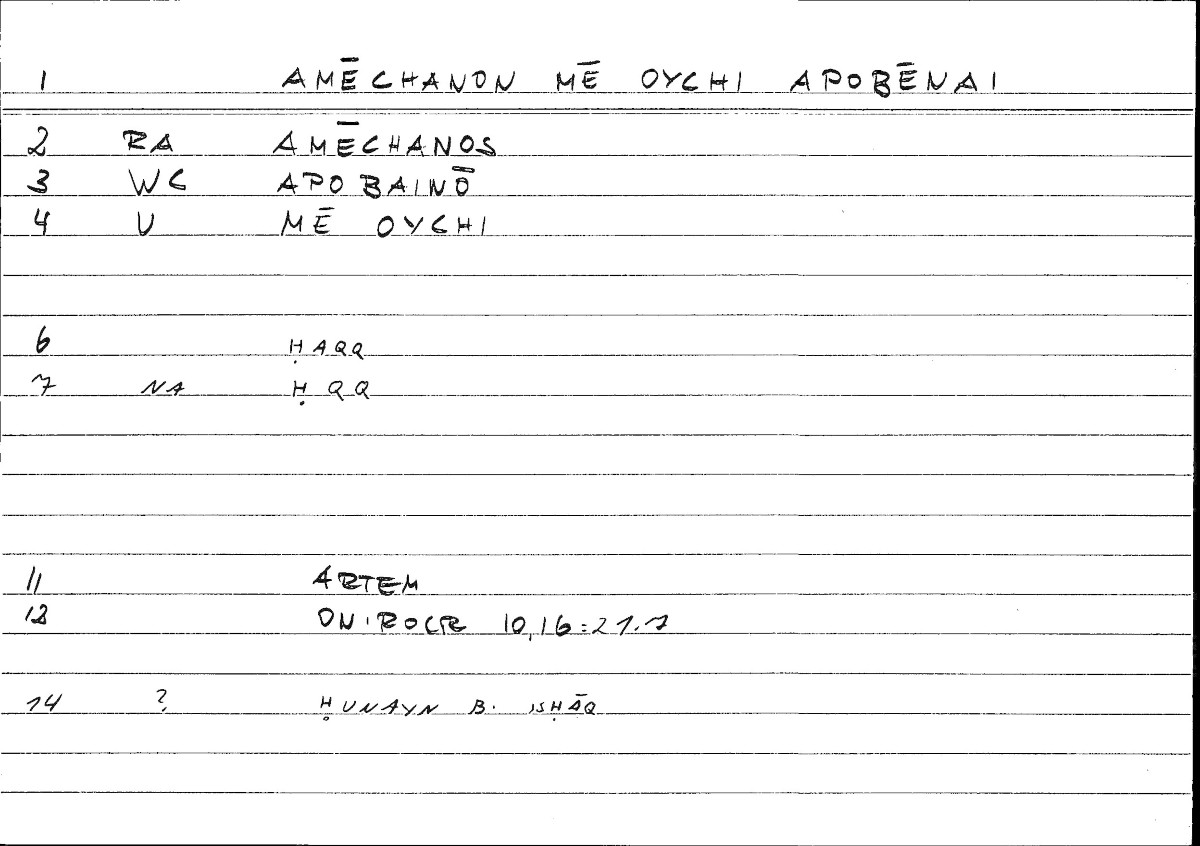 1 AMĒCHANON MĒ OYCHI APOBĒNAI
2 RA AMĒCHANOS
3 WC APOBAINŌ
4 U MĒ OYCHI
6 ḤAQQ
7 NA ḤQQ
11 ARTEM
12 ONIROCR 10,16:21.7
14 ? ḤUNAYN B. ISḤĀQ